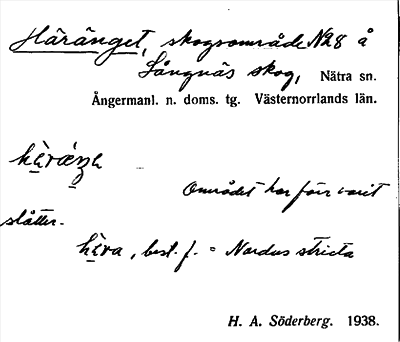 Häränget, skogsområde N28 å
Långnäs skog, Nätra sn.
Ångermanl. n. doms. tg. Västernorrlands län.
Området har förr varit
slåtter.
hæra, best. f. = Nardus stricta
H. A. Söderberg. 1938.